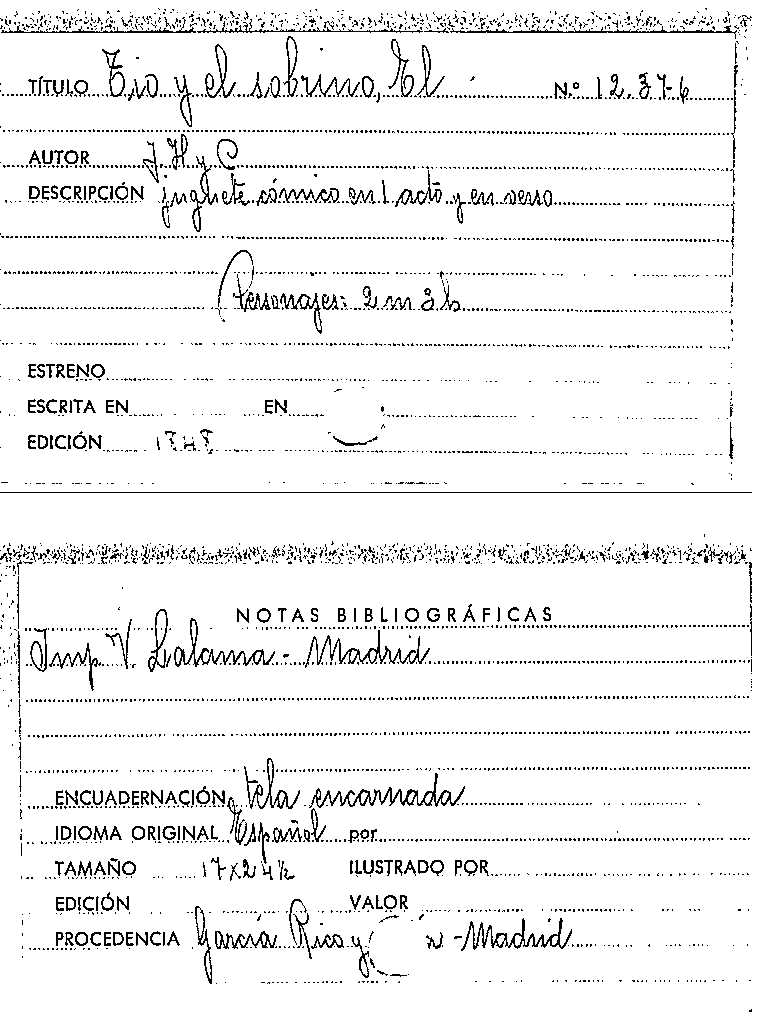 TÍTULO Tio y el sobrino, El N.º 12.37-6
AUTOR J. H y C
DESCRIPCIÓN juguete cómico en 1 acto y en verso
Personajes: 2 m 3 h
ESTRENO
ESCRITA EN EN
EDICIÓN 1848
NOTAS BIBLIOGRÁFICAS
Imp V. Lalama - Madrid
ENCUADERNACIÓN tela encarnada
IDIOMA ORIGINAL Español por
TAMAÑO 17x24½ ILUSTRADO POR
EDICIÓN VALOR
PROCEDENCIA García Rico y - Madrid